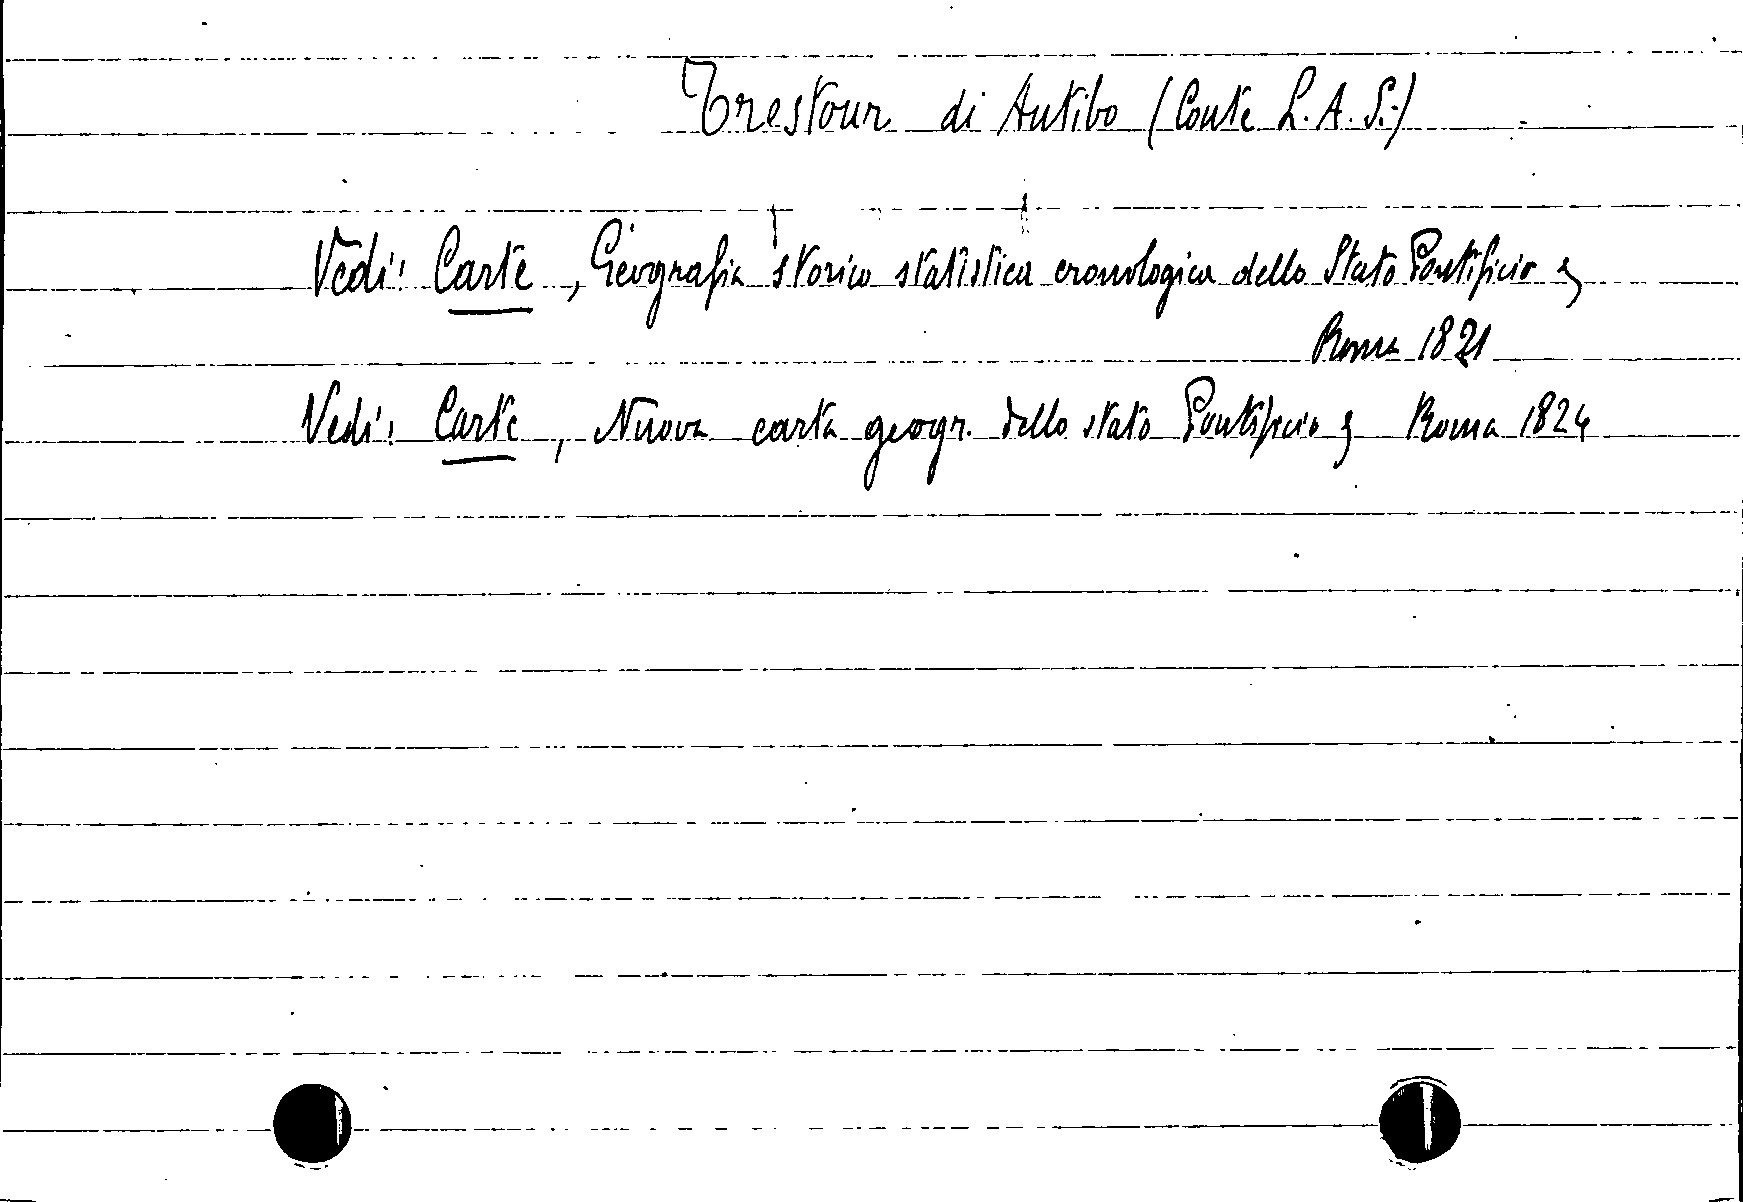 Trestour di Antibo (Conte L. A. S.)
Vedi: Carte, Geografia storico statistica cronologica dello Stato Pontificio &
Roma 1821
Vedi: Carte, Nuova carta geogr. dello stato Pontificio & Roma 1824